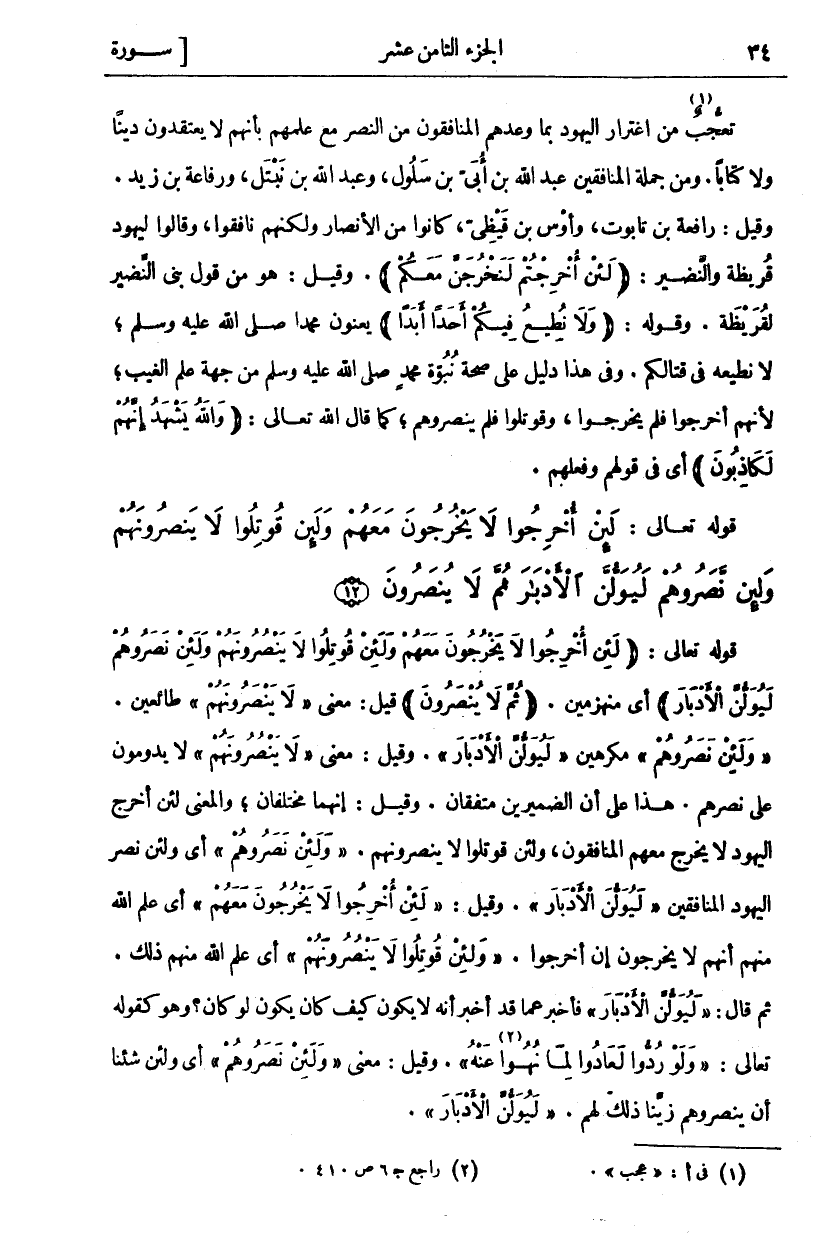 ٣٤ الجزء الثامن عشر [ ســورة
تعجّب(١) من اغترار اليهود بما وعدهم المنافقون من النصر مع علمهم بأنهم لا يعتقدون دينًا
ولا كتابًا. ومن جملة المنافقين عبد الله بن أُبَيّ بن سَلُول، وعبد الله بن نَبْتَل، ورفاعة بن زيد.
وقيل: رافعة بن تابوت، وأَوْس بن قَيْظِيّ، كانوا من الأنصار ولكنهم نافقوا، وقالوا ليهود
قُريظة والنَّضـير: ﴿ لَئِنْ أُخْرِجْتُمْ لَنَخْرُجَنَّ مَعَكُمْ ﴾. وقيـل: هو من قول بنى النَّضير
لقُرَيْظَة. وقـوله: ﴿ وَلَا نُطِيـعُ فِيكُمْ أَحَدًا أَبَدًا ﴾ يعنون محمدا صـلى الله عليه وسـلم؛
لا نطيعه فى قتالكم. وفى هذا دليل على صحة نُبُوّة محمدٍ صلى الله عليه وسلم من جهة علم الغيب؛
لأنهم أخرجوا فلم يخرجـوا، وقوتلوا فلم ينصروهم؛ كما قال الله تعـالى: ﴿ وَاللهُ يَشْهَدُ إِنَّهُمْ
لَكَاذِبُونَ ﴾ أى فى قولهم وفعلهم.
قوله تعـالى: لَئِنْ أُخْرِجُوا لَا يَخْرُجُونَ مَعَهُمْ وَلَئِن قُوتِلُوا لَا يَنصُرُونَهُمْ
وَلَئِن نَّصَرُوهُمْ لَيُوَلُّنَّ ٱلْأَدْبَـٰرَ ثُمَّ لَا يُنصَرُونَ ١٢
قوله تعالى: ﴿ لَئِن أُخْرِجُوا لَا يَخْرُجُونَ مَعَهُمْ وَلَئِنْ قُوتِلُوا لَا يَنْصُرُونَهُمْ وَلَئِنْ نَصَرُوهُمْ
لَيُوَلُّنَّ الْأَدْبَارَ ﴾ أى منهزمين. ﴿ ثُمَّ لَا يُنْصَرُونَ ﴾ قيل: معنى « لَا يَنْصُرُونَهُمْ » طائعين.
« وَلَئِنْ نَصَرُوهُمْ » مكرهين « لَيُوَلُّنَّ الْأَدْبَارَ ». وقيل: معنى « لَا يَنْصُرُونَهُمْ » لا يدومون
على نصرهم. هـذا على أن الضميرين متفقان. وقيـل: إنهما مختلفان؛ والمعنى لئن أخرج
اليهود لا يخرج معهم المنافقون، ولئن قوتلوا لا ينصرونهم. « وَلَئِنْ نَصَرُوهُمْ » أى ولئن نصر
اليهود المنافقين « لَيُوَلُّنَّ الْأَدْبَارَ ». وقيل: « لَئِنْ أُخْرِجُوا لَا يَخْرُجُونَ مَعَهُمْ » أى علم الله
منهم أنهم لا يخرجون إن أخرجوا. « وَلَئِنْ قُوتِلُوا لَا يَنْصُرُونَهُمْ » أى علم الله منهم ذلك.
ثم قال: « لَيُوَلُّنَّ الْأَدْبَارَ » فأخبر عما قد أخبر أنه لا يكون كيف كان يكون لو كان؟ وهو كقوله
تعالى: « وَلَوْ رُدُّوا لَعَادُوا لِمَـا نُهُـوا عَنْهُ(٢) ». وقيل: معنى « وَلَئِنْ نَصَرُوهُمْ » أى ولئن شئنا
أن ينصروهم زيَّنا ذلك لهم. « لَيُوَلُّنَّ الْأَدْبَارَ ».
(١) فى أ: « عجب ». (٢) راجع ج ٦ ص ٤١٠.